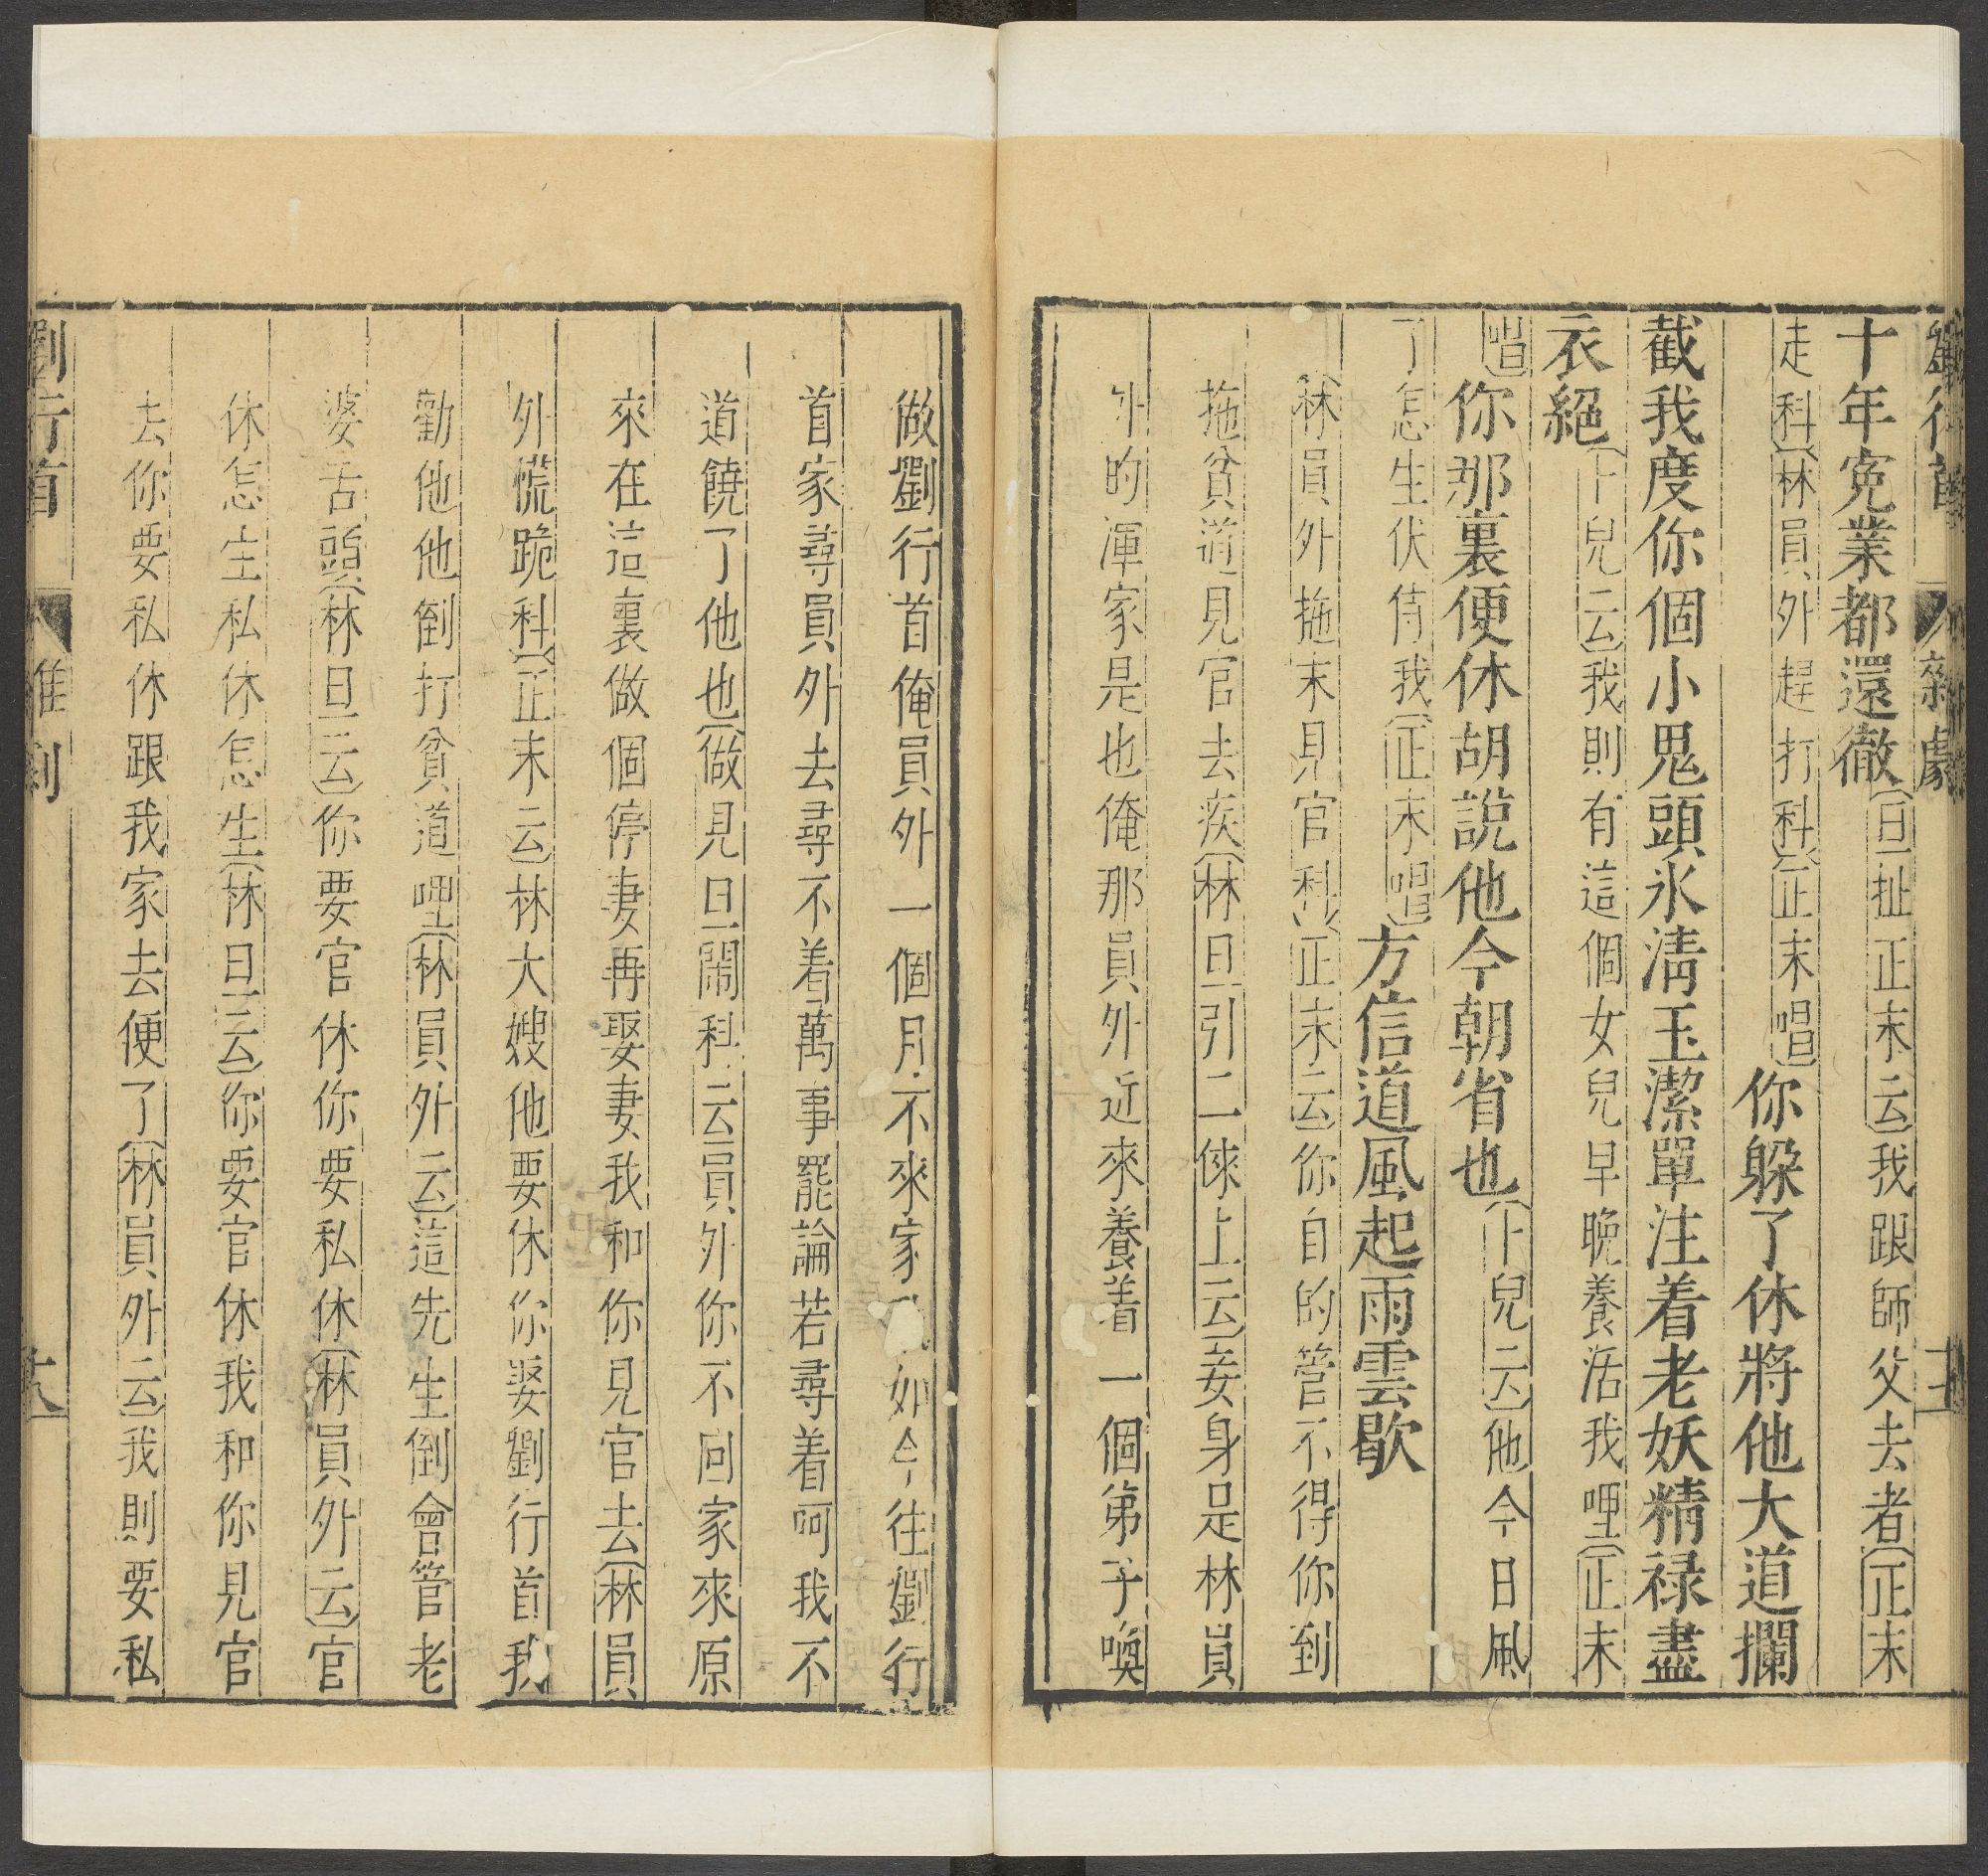 劉行首 雜劇
十年寃業都還徹(旦扯正末云)我跟師父去者(正末
走科)(林員外趕打科)(正末唱)你躲了休將他大道攔
截我度你個小鬼頭氷清玉潔單注着老妖精祿盡
衣絕(卜兒云)我則有這個女兒早晚養活我哩(正末
唱)你那裏便休胡說他今朝省也(卜兒云)他今日風
了怎生伏侍我(正末唱)方信道風起雨雲歇
(林員外拖末見官科)(正末云)你自的管不得你到
拖貧道見官去疾(林旦引二倈上云)妾身是林員
外的渾家是也俺那員外近來養着一個弟子喚
做劉行首俺員外一個月不來家如今往劉行
首家尋員外去尋不着萬事罷論若尋着呵我不
道饒了他也(做見旦鬧科云)員外你不回家來原
來在這裏做個停妻再娶妻我和你見官去(林員
外慌跪科)(正末云)林大嫂他要休你娶劉行首我
勸他他倒打貧道哩(林員外云)這先生倒會管老
婆舌頭(林旦云)你要官休你要私休(林員外云)官
休怎生私休怎生(林旦云)你要官休我和你見官
去你要私休跟我家去便了(林員外云)我則要私
劉行首 雜劇